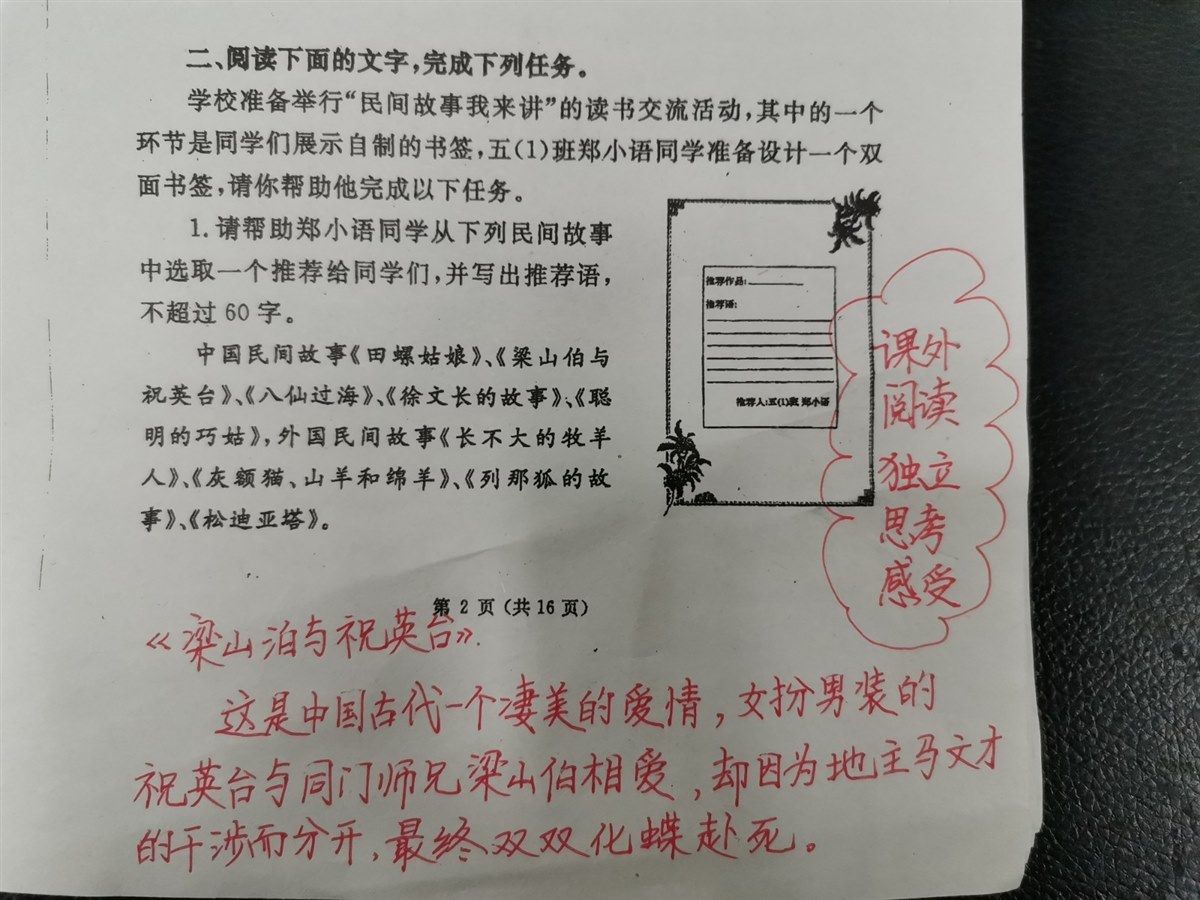 二、阅读下面的文字,完成下列任务。
学校准备举行“民间故事我来讲”的读书交流活动,其中的一个
环节是同学们展示自制的书签,五(1)班郑小语同学准备设计一个双
面书签,请你帮助他完成以下任务。
1.请帮助郑小语同学从下列民间故事
中选取一个推荐给同学们,并写出推荐语,
不超过60字。
中国民间故事《田螺姑娘》、《梁山伯与
祝英台》、《八仙过海》、《徐文长的故事》、《聪
明的巧姑》,外国民间故事《长不大的牧羊
人》、《灰额猫、山羊和绵羊》、《列那狐的故
事》、《松迪亚塔》。
推荐作品:
推荐语:
推荐人:五(1)班 郑小语
课外
阅读
独立
思考
感受
第2页(共16页)
《梁山泊与祝英台》.
这是中国古代一个凄美的爱情,女扮男装的
祝英台与同门师兄梁山伯相爱,却因为地主马文才
的干涉而分开,最终双双化蝶赴死。